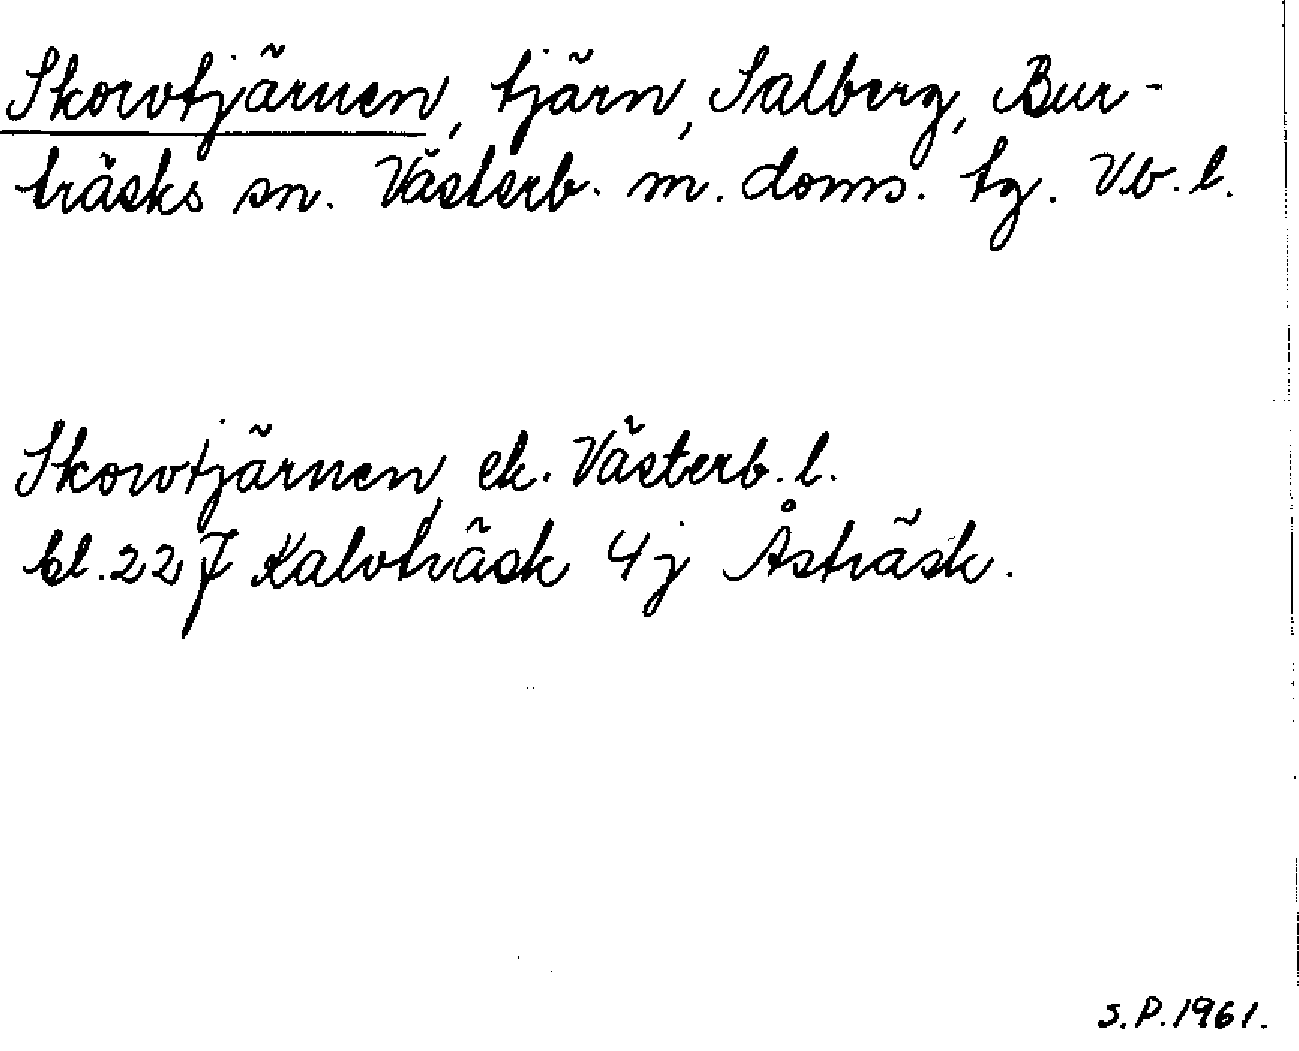 Skorvtjärnen, tjärn, Salberg, Bur-
träsks sn. Västerb. m. doms. tg. Vb. l.
Skorvtjärnen, ek. Västerb. l.
bl. 22 J Kalvträsk 4j Åsträsk.
S. P. 1961.